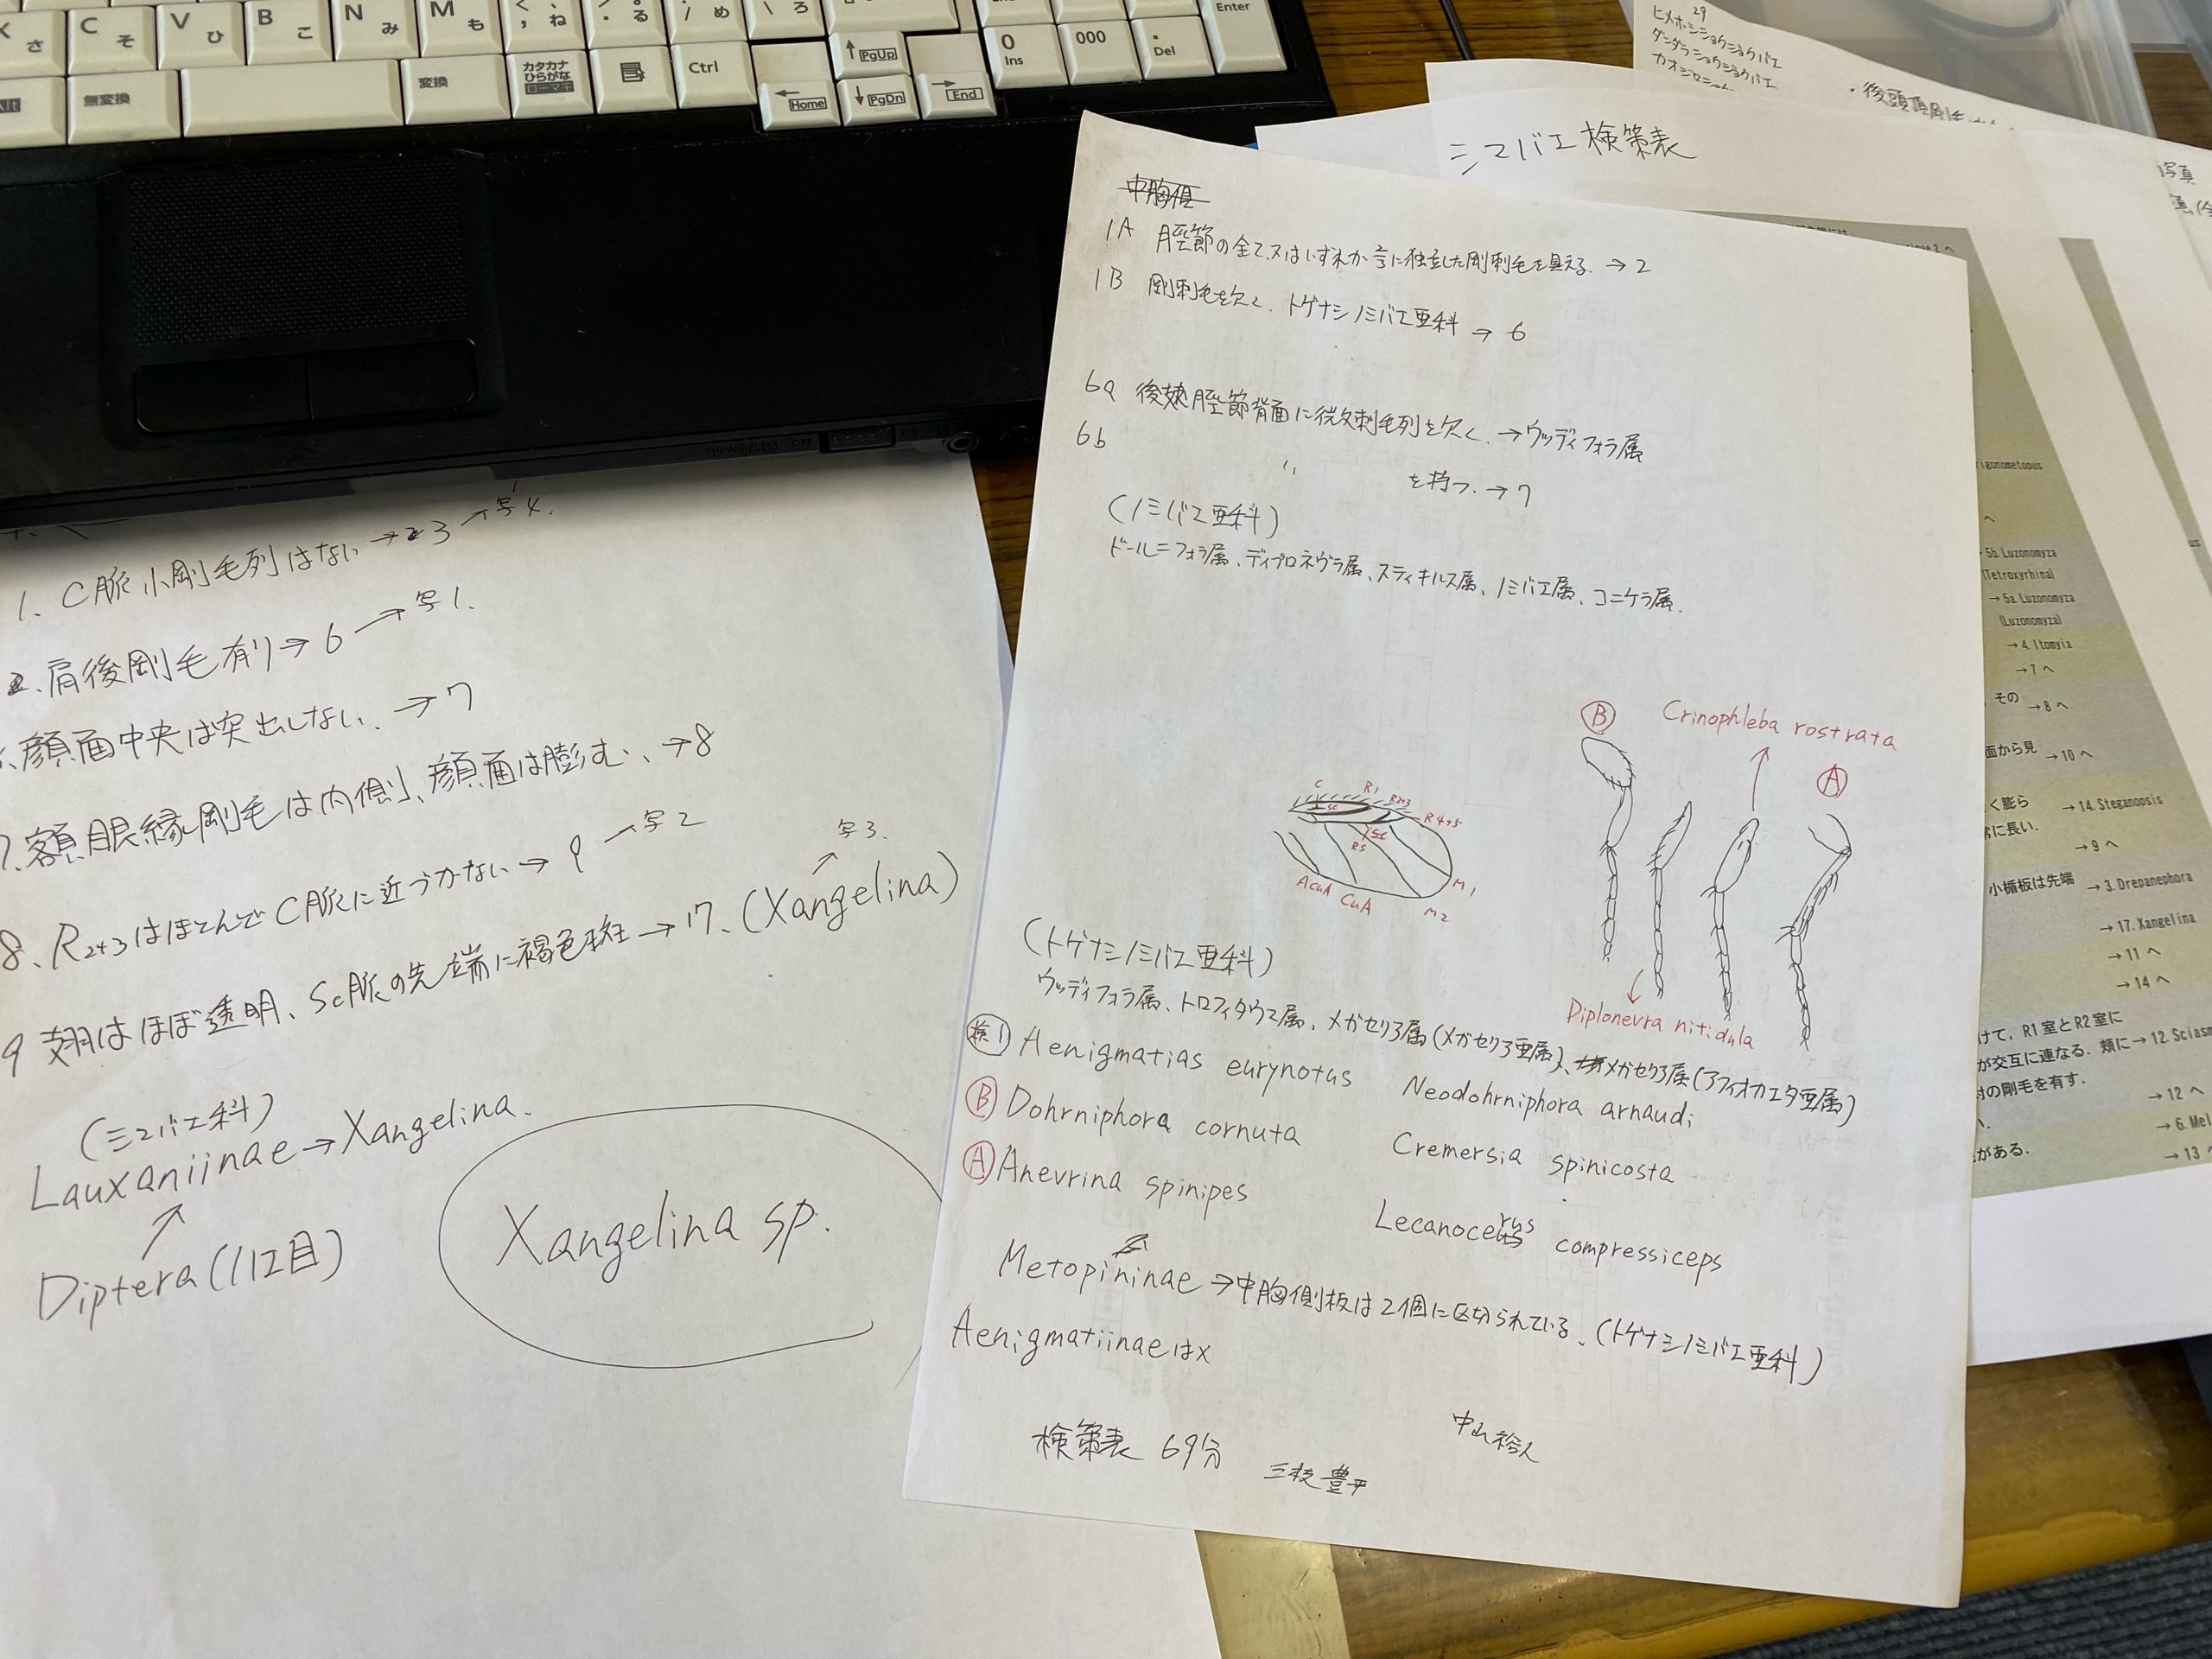 C そ
V ひ
B こ
N み
M も
ね
る
め
ろ
Enter
0
Ins
000
Del
Alt
無変換
変換
カタカナ
ひらがな
ローマ字
Ctrl
PgUp
Home
PgDn
End
WIRELESS OFF ON
29
ヒメホシショウジョウバエ
ダンダラショウジョウバエ
・後頭頂剛毛
シマバエ検索表
写真
中胸側
1A 脛節の全て又はいずれかに独立した剛刺毛を具える. → 2
1B 剛刺毛を欠く. トゲナシノミバエ亜科 → 6
6a 後脚脛節背面に微刺毛列を欠く. → ウッディフォラ属
6b 〃 を持つ. → 7
(ノミバエ亜科)
ドールニフォラ属、ディプロネヴラ属、スティキルス属、ノミバエ属、コニケラ属.
B Crinophleba rostrata
A
C R1 R2+3
Sc R4+5
Rs
M1
ACuA CuA M2
Diplonevra nitidula
(トゲナシノミバエ亜科)
ウッディフォラ属、トロフィタウマ属、メガセリア属(メガセリア亜属)、メガセリア属(アフィオカエタ亜属)
検1 Aenigmatias eurynotus Neodohrniphora arnaudi
B Dohrniphora cornuta Cremersia spinicosta
A Anevrina spinipes Lecanocerus compressiceps
Metopininae → 中胸側板は2個に区切られている、(トゲナシノミバエ亜科)
Aenigmatiinaeは×
検索表 69分 三枝豊平 中山裕人
1. C脈小剛毛列はない → 3 → 写4.
2. 肩後剛毛有り → 6 → 写1.
顔面中央は突出しない. → 7
7. 額眼縁剛毛は内側、顔面は膨む、→ 8
8、R2+3はほとんどC脈に近づかない → 9 → 写2
9 翅はほぼ透明、Sc脈の先端に褐色斑 → 17. (Xangelina) 写3.
(シマバエ科)
Lauxaniinae → Xangelina.
Diptera(ハエ目)
Xangelina sp.
rigonometopus
へ
→ 5b. Luzonomyza
(Tetroxyrhina)
→ 5a. Luzonomyza
(Luzonomyza)
→ 4. Itomyia
→ 7 へ
その → 8 へ
面から見 → 10 へ
く膨ら → 14. Steganopsis
常に長い.
→ 9 へ
小楯板は先端 → 3. Drepanephora
→ 17. Xangelina
→ 11 へ
→ 14 へ
けて, R1室とR2室に
が交互に連なる. 頬に → 12. Sciasm
対の剛毛を有す.
→ 12 へ
→ 6. Mel
がある. → 13 へ